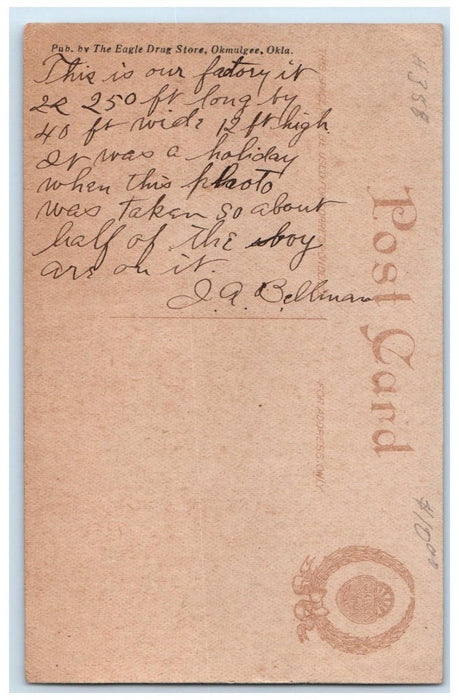 Pub. by The Eagle Drug Store, Okmulgee, Okla.
This is our factory it
is 250 ft long by
40 ft wide 12 ft high
It was a holiday
when this photo
was taken so about
half of the boy
are on it.
J. A. Bellman
Post Card
FOR ADDRESS ONLY
#358